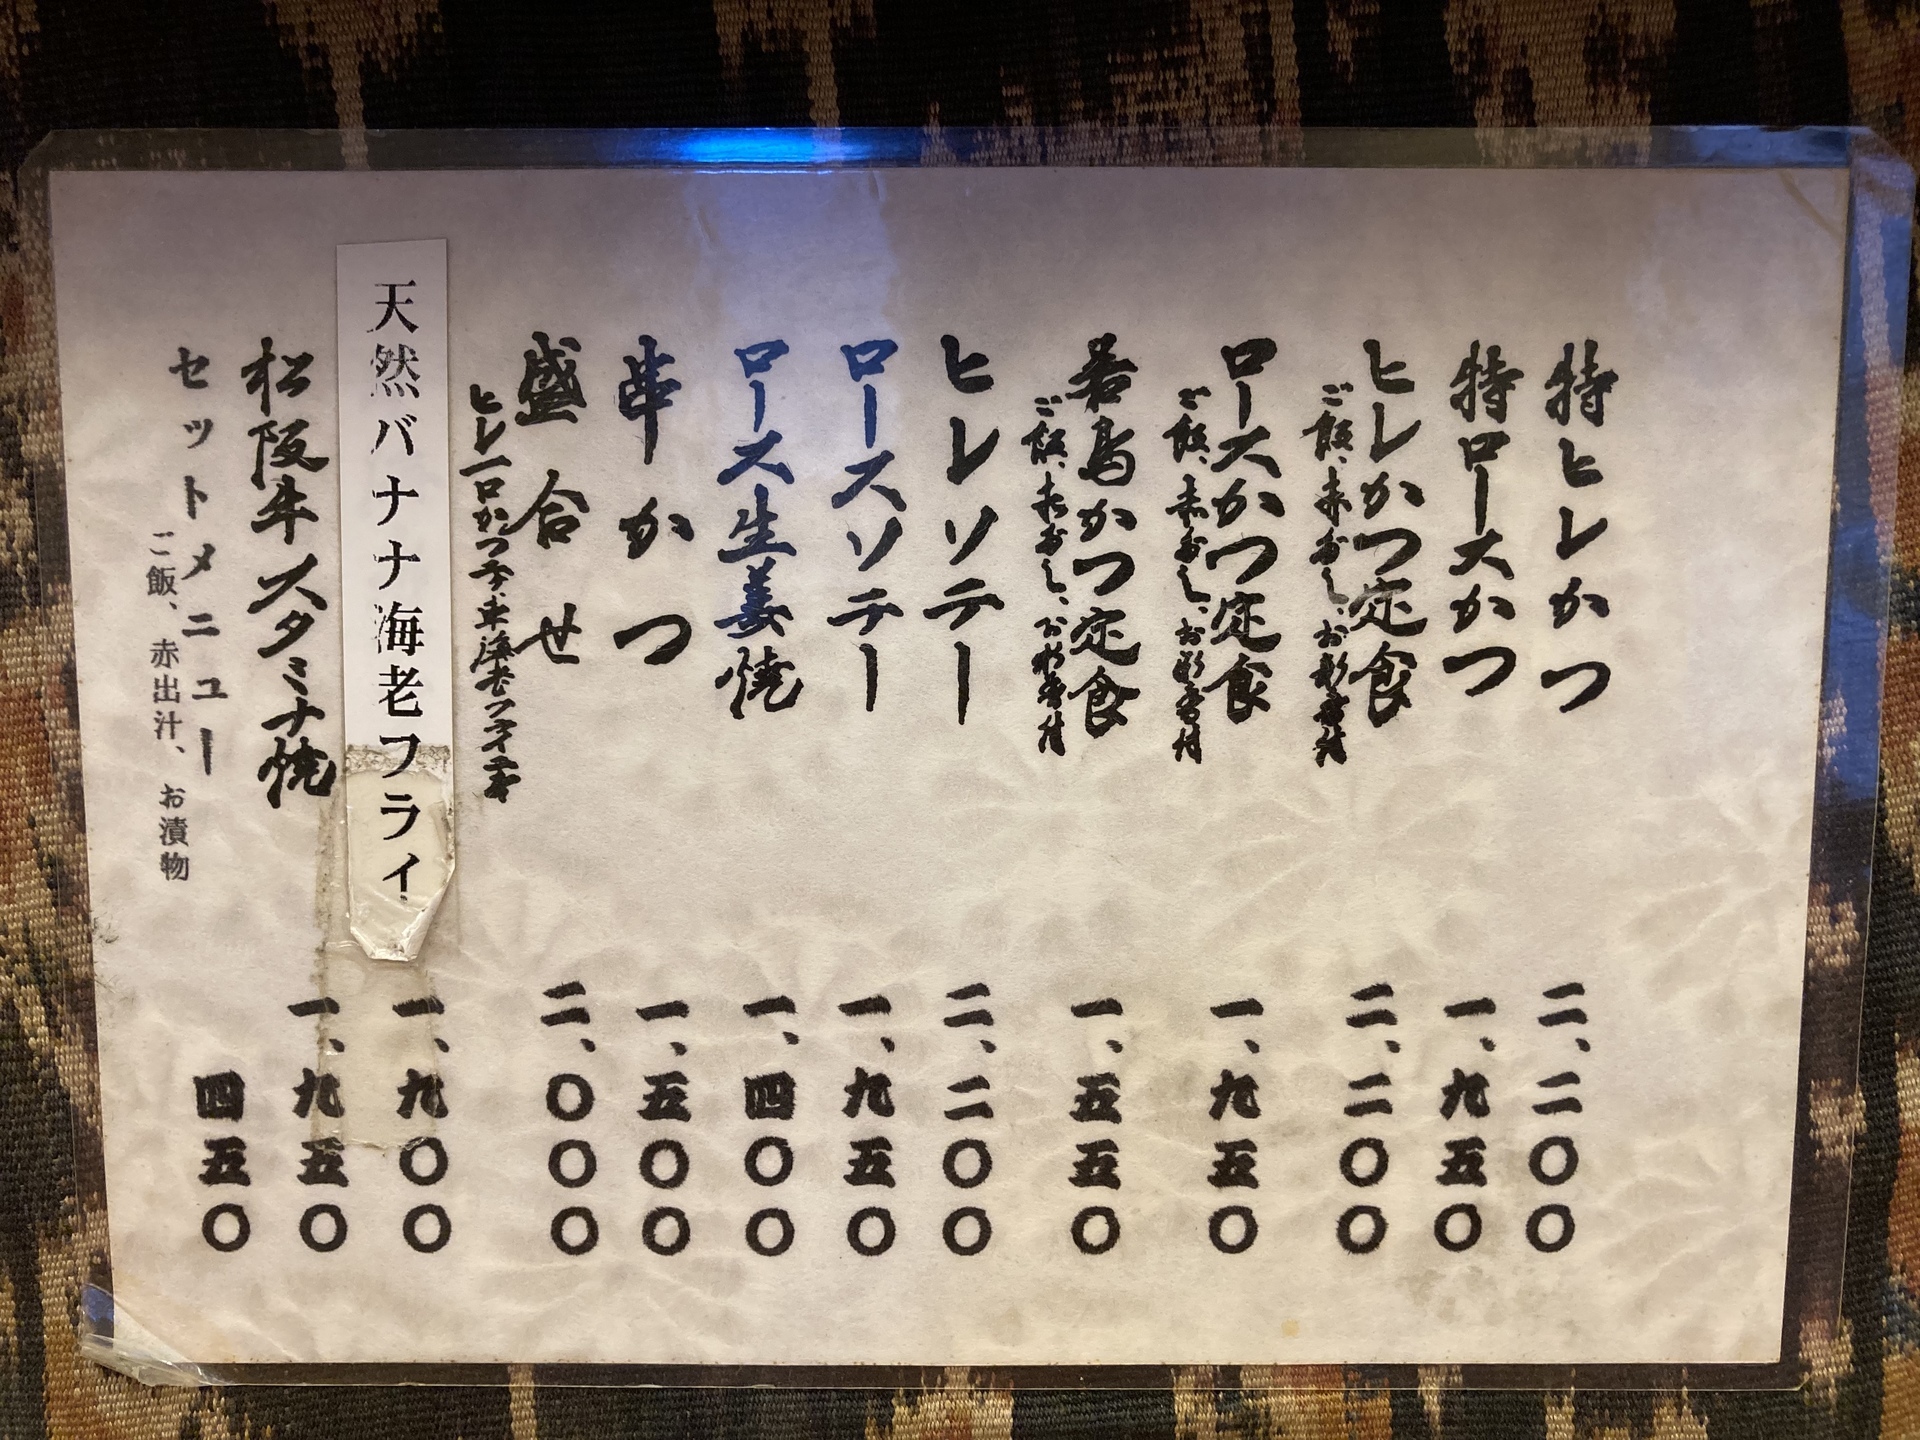 特ヒレかつ 二、二〇〇
特ロースかつ 一、九五〇
ヒレかつ定食 二、二〇〇
ご飯、赤だし、お新香付
ロースかつ定食 一、九五〇
ご飯、赤だし、お新香付
若鳥かつ定食 一、五五〇
ご飯、赤だし、お新香付
ヒレソテー 二、二〇〇
ロースソテー 一、九五〇
ロース生姜焼 一、四〇〇
串かつ 一、五〇〇
盛合せ 二、〇〇〇
ヒレ一口かつ二ヶ、車海老フライ二本
天然バナナ海老フライ 一、九〇〇
松阪牛スタミナ焼 一、九五〇
セットメニュー 四五〇
ご飯、赤出汁、お漬物